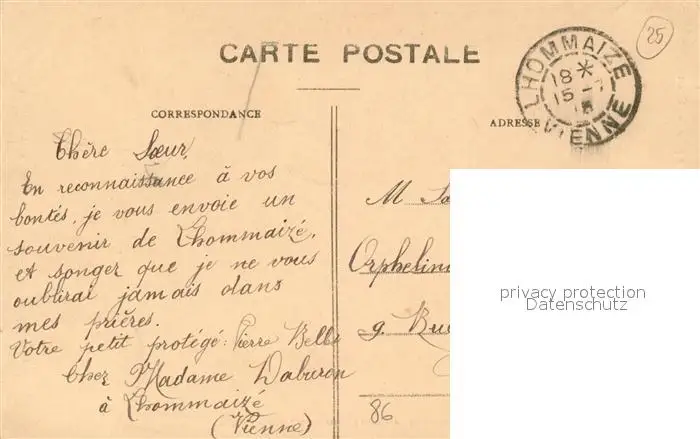 CARTE POSTALE
LHOMMAIZE
18 *
15 -
VIENNE
25
CORRESPONDANCE
ADRESSE
Chère Sœur,
En reconnaissance à vos
bontés, je vous envoie un
souvenir de Lhommaizé,
et songer que je ne vous
oublirai jamais dans
mes prières.
Votre petit protégé: Pierre
Chez Madame Daburon
à Lhommaizé
(Vienne)
M
Orphelin
9 Rue
86
privacy protection
Datenschutz